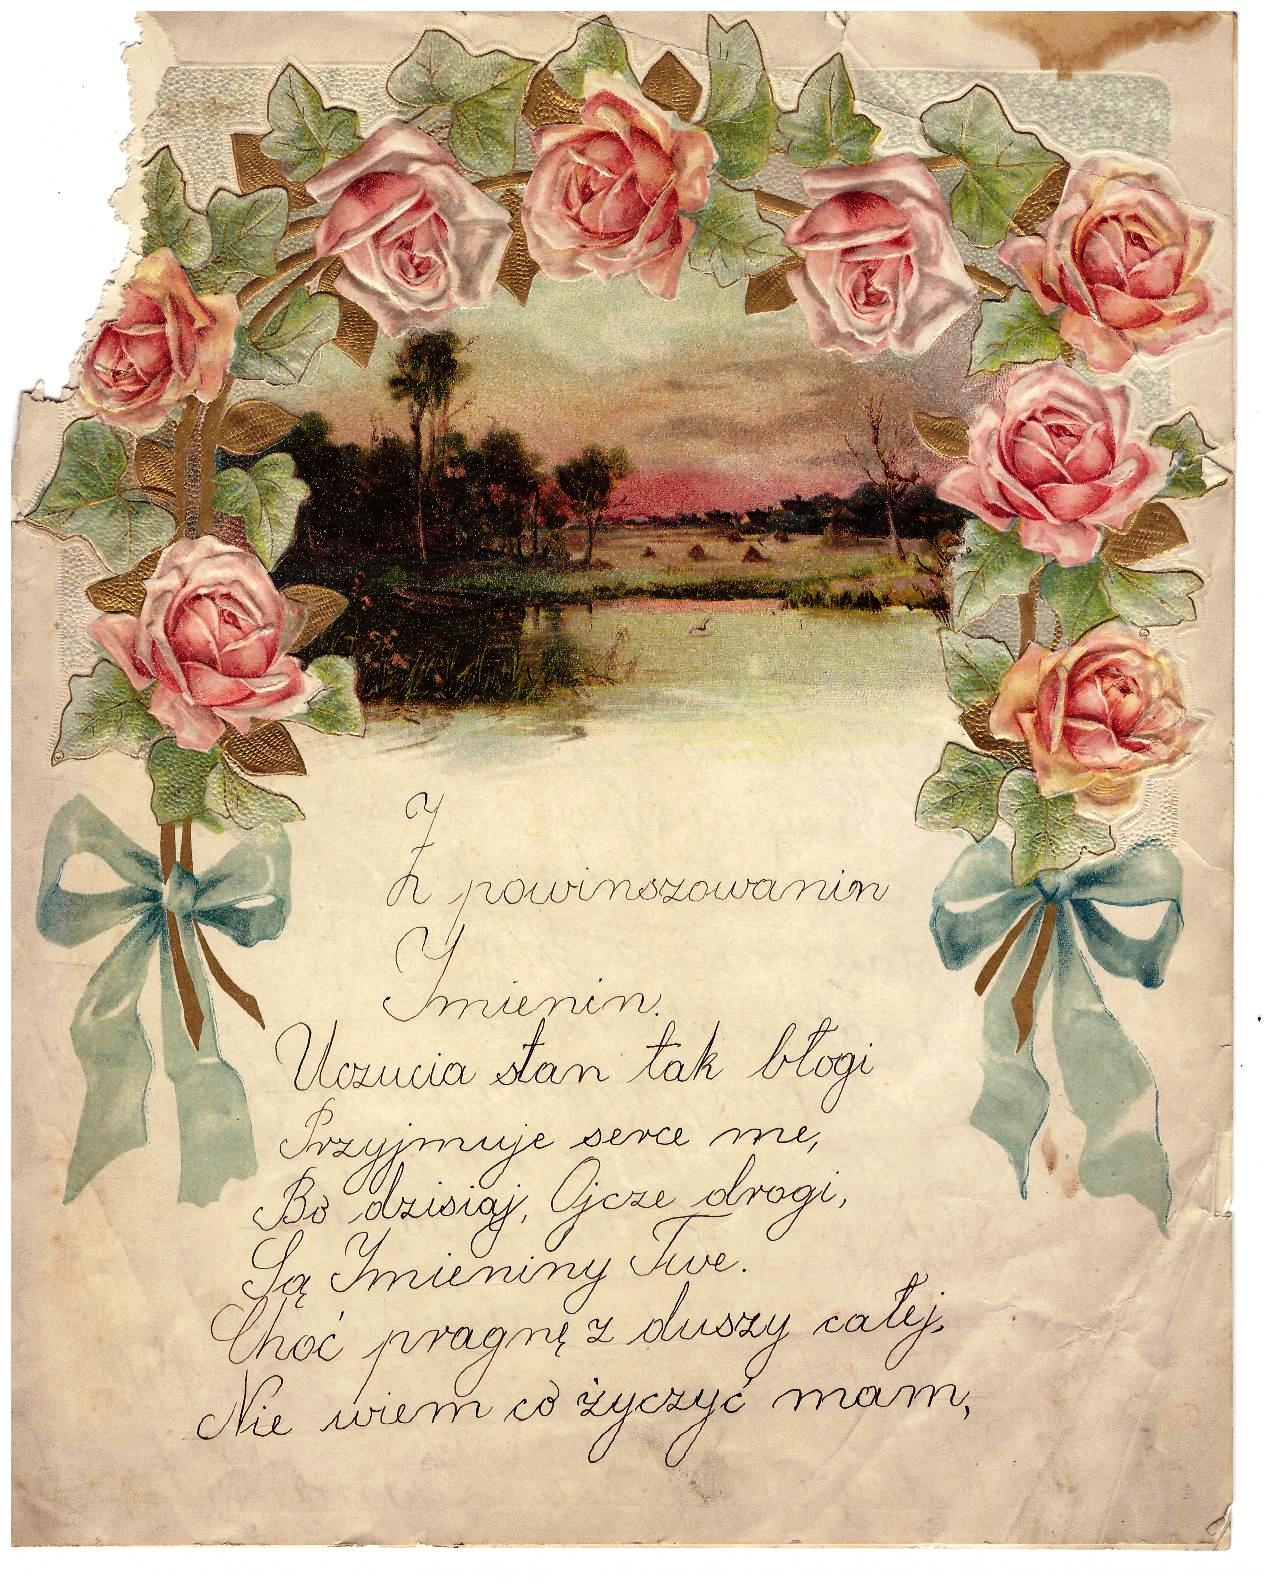 Z powinszowanin
Imienin.
Uczucia stan tak błogi
Przyjmuje serce me,
Bo dzisiaj, Ojcze drogi,
Są Imieniny Twe.
Choć pragnę z duszy całej,
Nie wiem co życzyć mam,